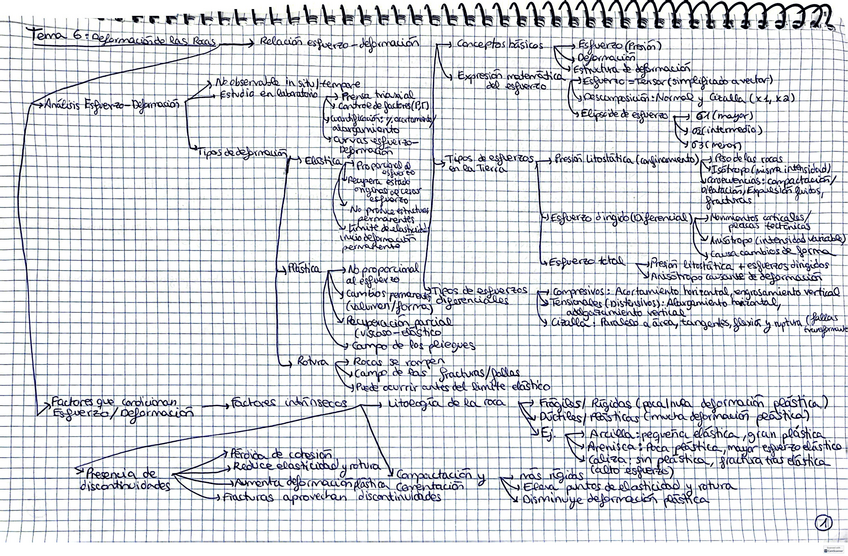 Tema 6: Deformación de las Rocas
Relación esfuerzo-deformación
Conceptos básicos
Esfuerzo (Presión)
Deformación
Estructura de deformación
Expresión matemática
del esfuerzo
Esfuerzo - Tensor (simplificado a vector)
Descomposición: Normal y Cizalla (x1, x2)
Elipsoide de esfuerzo
σ1 (mayor)
σ2 (intermedio)
σ3 (menor)
Tipos de esfuerzos
en la Tierra
Presión Litostática (confinamiento)
Peso de las rocas
Isótropo (misma intensidad)
Consecuencias: compactación/
fracturas
Esfuerzo dirigido (Diferencial)
Movimientos corticales/
placas tectónicas
Anisótropo (intensidad variable)
Causa cambios de forma
Esfuerzo total
Presión litostática + esfuerzos dirigidos
Anisótropo causante de deformación
Tipos de esfuerzos
diferenciales
Compresivos: Acortamiento horizontal, engrosamiento vertical
Tensionales (Distensivos): Alargamiento horizontal,
adelgazamiento vertical
Cizalla: Paralelo a área, tangentes, flexión y ruptura (fallas
transformantes
Análisis Esfuerzo-Deformación
No observable in situ/tempore
Estudio en laboratorio
Prensa triaxial
Control de factores (P,T)
Cuantificación: % acortamiento/
alargamiento
Curvas esfuerzo-
Deformación
Tipos de deformación
Elástica
Proporcional al
esfuerzo
Recupera estado
original al cesar
esfuerzo
No produce estructuras
permanentes
Límite de elasticidad:
inicio deformación
permanente
Plástica
No proporcional
al esfuerzo
Cambios permanentes
(volumen/forma)
Recuperación parcial
(viscoso-elástico
Campo de los pliegues
Rotura
Rocas se rompen
Campo de las fracturas/fallas
Puede ocurrir antes del límite elástico
Factores que condicionan
Esfuerzo/Deformación
Factores intrínsecos
Litología de la roca
Frágiles/Rígidos (poca/nula deformación plástica)
Dúctiles/Plásticas (mucha deformación plástica)
Ej.
Arcilla: pequeña elástica, gran plástica
Arenisca: Poca plástica, mayor esfuerzo elástico
Caliza: sin plástica, fractura tras elástica
(alto esfuerzo)
Presencia de
discontinuidades
Pérdida de cohesión
Reduce elasticidad y rotura
Aumenta deformación plástica
Fracturas aprovechan discontinuidades
Compactación y
Cementación
más rígidos
Eleva puntos de elasticidad y rotura
Disminuye deformación plástica
1